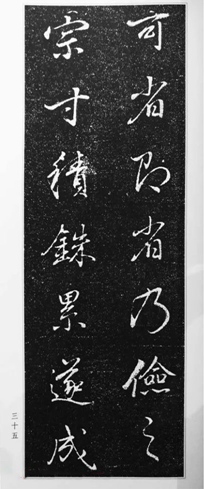 可省即省乃儉之
宗寸積銖累遂成
三十五